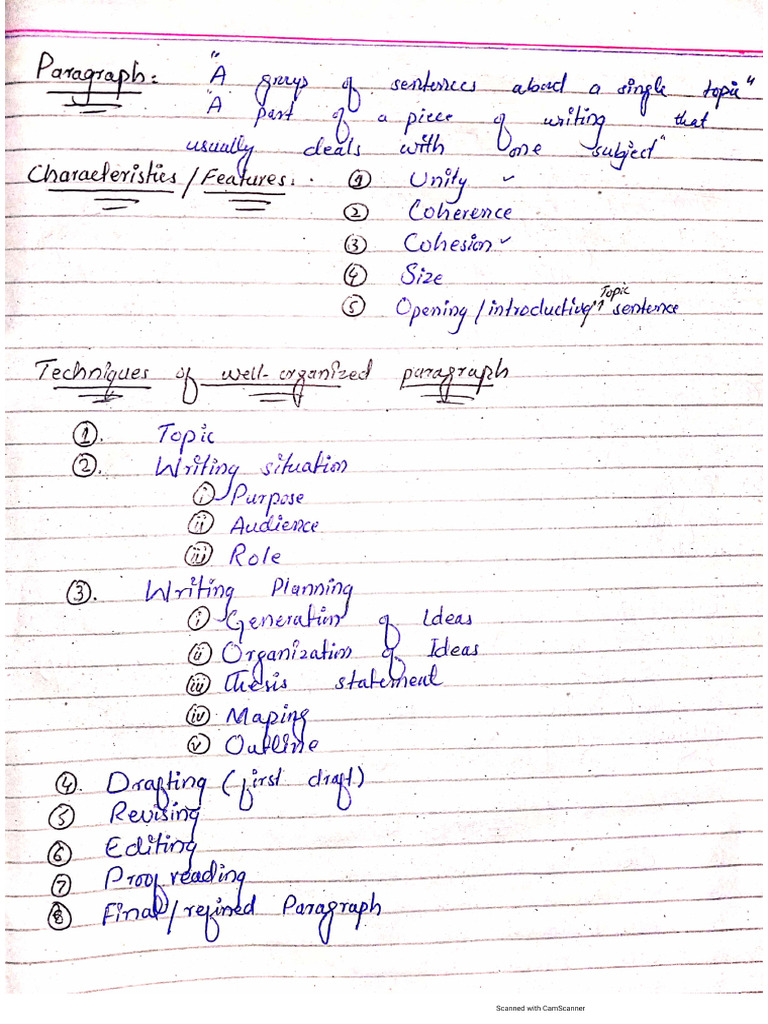 Paragraph: "A grups of sentences about a single topic"
"A part of a piece of writing that
usually deals with one subject"
Characteristics / Features: ① Unity ✓
② Coherence
③ Cohesion ✓
④ Size
Topic
⑤ Opening / introductiry sentence
Techniques of well-organized paragraph
①. Topic
②. Writing situation
ⓘ Purpose
ⓘⓘ Audience
ⓘⓘⓘ Role
③. Writing Planning
ⓘ Generation of Ideas
ⓘⓘ Organization of Ideas
ⓘⓘⓘ Thesis statement
ⓘⓥ Maping
ⓥ Outline
④. Drafting (first draft)
⑤ Revising
⑥ Editing
⑦ Proof reading
⑧ Final / refined Paragraph
Scanned with CamScanner